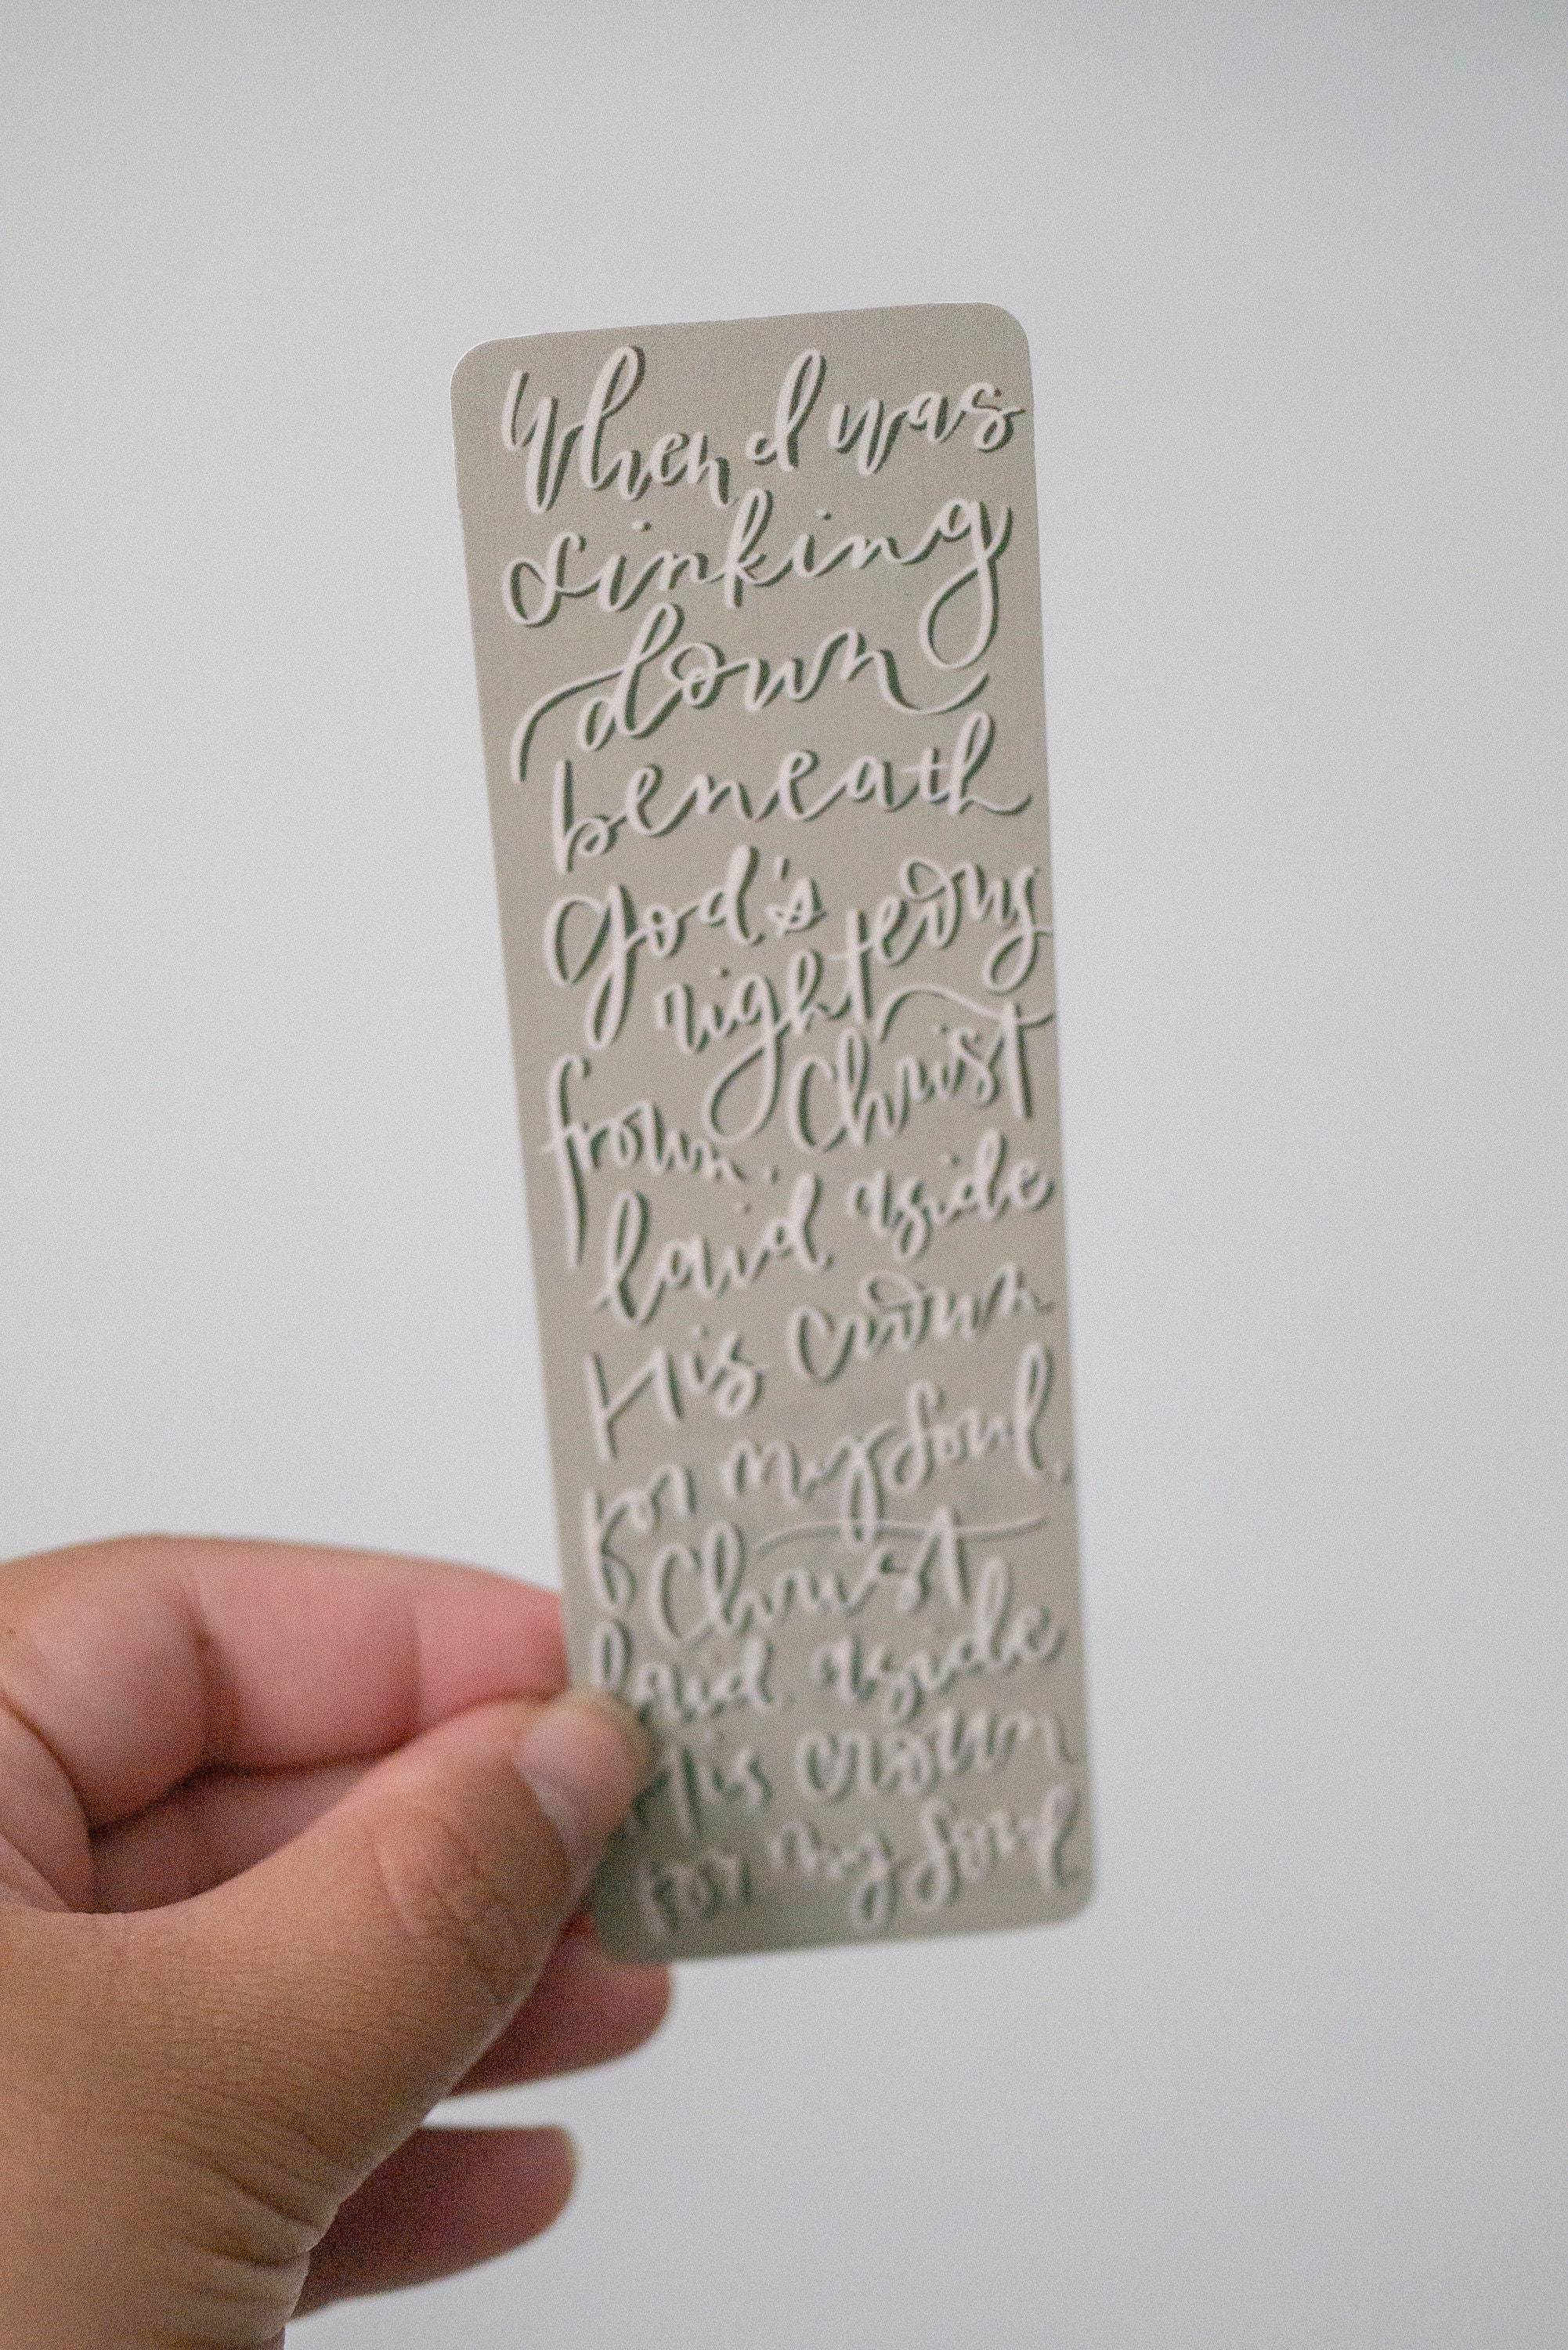 When I was
sinking
down
beneath
God's
righteous
frown, Christ
laid aside
His crown
for my soul,
Christ
laid aside
His crown
for my soul